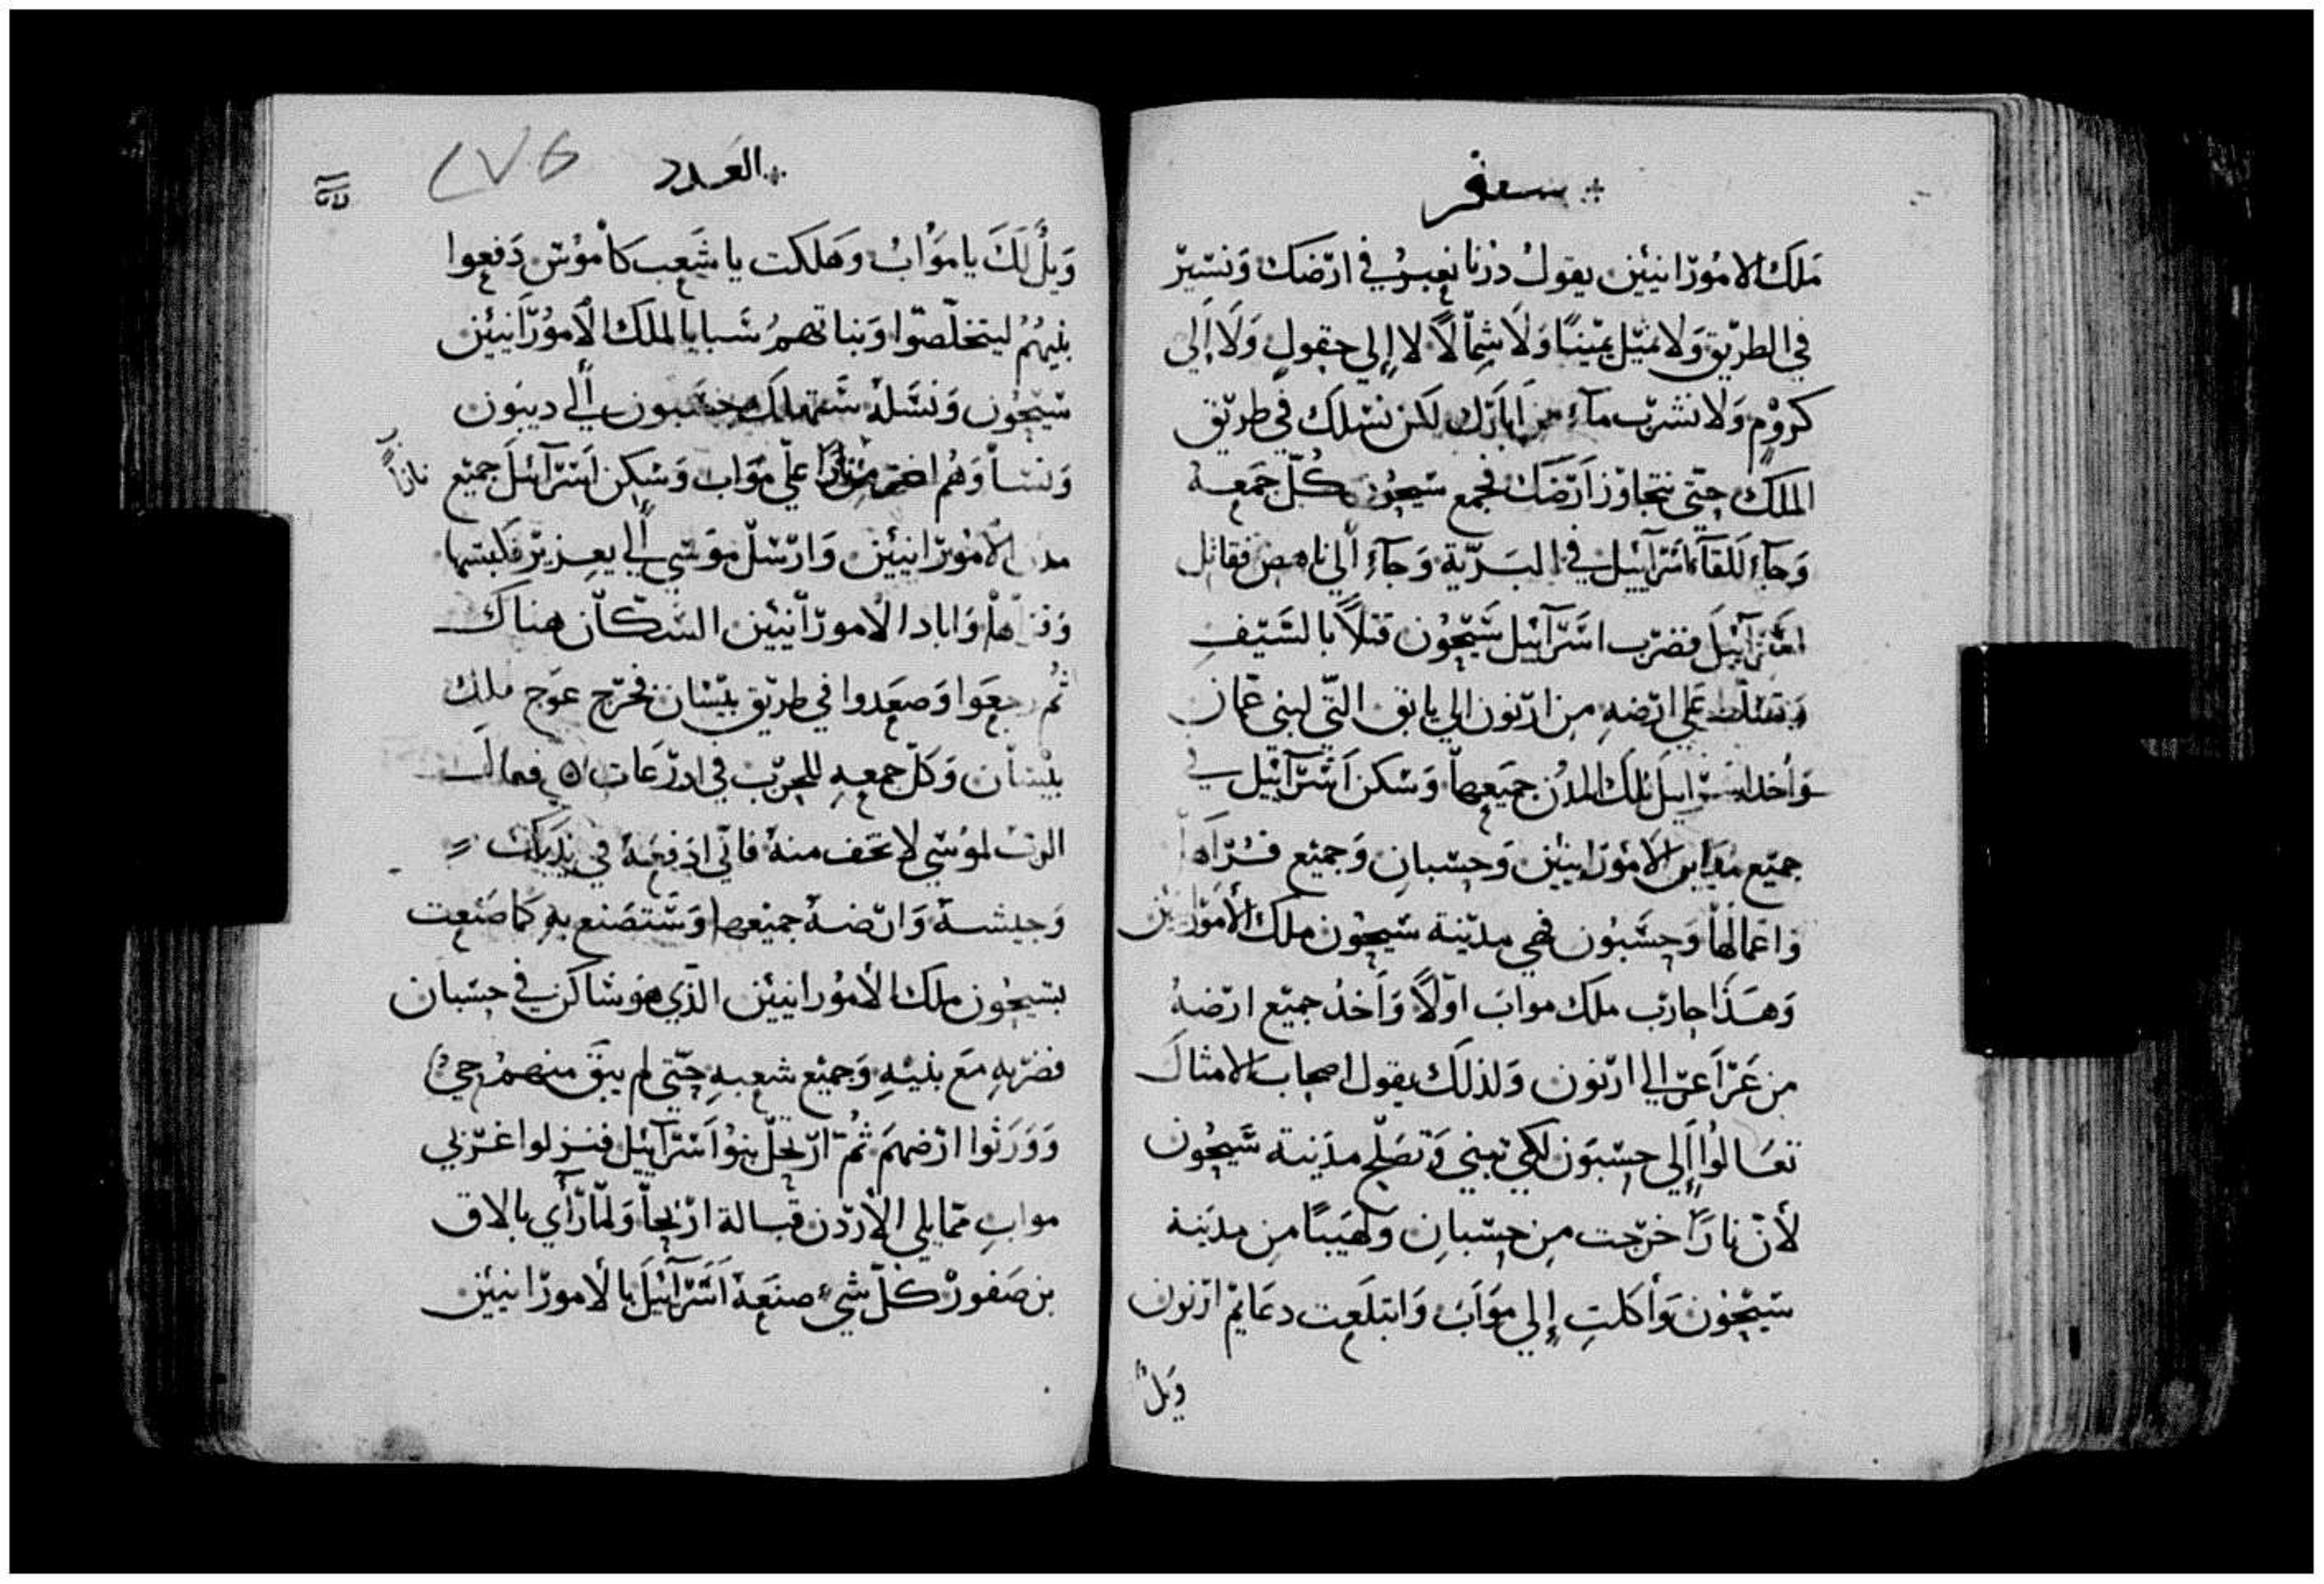 سفر
مَلَك الامُورّانيئين يقولُ دزنا نعبرُ في ارّضكَ وَنسّيرّ
في الطرّيق وَلا نمّيل يمّينًا وَلَا شِمّالًا لا إلي حقولٍ وَلَا إلَي
كرُوْمٍ وَلا نشرّب مآءِ من ابارّك لكن نسّلك في طرّيق
الملكِ حتّي نتجاوّز ارّضَك فجمع سّيحُون كُلّ جَمَعهُ
وَجآءِ للقآءِ اسّرآييل في البَرّيّة وَجآءِ ألي ناهص فقاتل
اسّرآئيلَ فضرّب اسّرآئيل سّيّحُون قتلًا بالسَّيّفِ
وَتسّلّط عَلي ارّضهِ من ارّنون الي يابق التّي لبني عمّان
وَأخذ اسّرايل تلك المدُن جميَعِهاّ وَسّكن اسّرّآئيل في
جميّع مدَاين الامُورّانيئين وَحسّبانِ وَجميّع قُرّاها
وَاعمالهاّ وَحسَّبُون فهي مدّينة سّيحُون ملك الأموّرانيئن
وَهَذَا حارّب ملَك موابَ اوّلاً وَأَخذُ جميّع ارّضهُ
من عَرّاعرّ الي ارّنون وَلذلَك يقول اصحاب الامثالَ
تعَالوُا إلَي حسّبوَن لكي تبني وَتصَلّح مدَينة سَّيحُون
لأنّ نارًا خرّجت من حسّبانِ وَلهَيبًا من مدَينة
سّيّحُون وَأكلتِ إلي موَآبَ وَابتلَعت دعَايمّ ارّنون
وَيلٌ
العَدد
٢٧٥
وَيلٌ لَكَ يا موَابُ وَهلَكت يا شَعب كاْموُسّ دَفعِوا
بنيهُمُ ليتخلّصّوا وَبناتهمُ سَّبايا الملَك الأمُورّانيئين
سّيّحُون وَنسَّلهُ سَّتهلَك حسَّبون ألي ديبَون
وَنسّاوَهُم اضرّمنَ علي موَاب وَسّكن اسّرآئيلَ جميّع
نارًا
مدن الأموُرّانيئين وَارّسّلَ موَسّي ألي يعزيرّ فكبسّها
وَابادا الأمورّانيئين السَّكّانَ هناكَ
ثُم رجعَوا وَصعَدوا في طرّيق بيّسّان فخرّج عوَج ملكِ
بيّسّان وَكلّ جمعهِ للحرّب في ادرّعَات فقال
الربّ لموُسّي لا تخف منهُ فانّي ادفعَهُ في يدَيكَ
وَجيشهُ وَارّضهُ جميّعها وَسَّتصنع بهِ كما صَنعت
بسّيحُون ملك الأموُرانيئين الذّي هوَ سّاكن في حسّبان
فضرّبهِ مَع بنيّهِ وَجميّع شعبهِ حتّي لم يبقَ منهمُ حيُّ
وَوَرَثوا ارّضهمَ ثُمّ ارّتحلّ بنوُا اسّرآئيل فنزلوا غرّبي
موابِ ممّا يلي الأردّن قبالة ارّيحاّ وَلمّا رّأي بالاق
بن صَفورّ كلّ شيءِ صنعَهُ اسَّرّآئيلَ بالأمورّانيئين